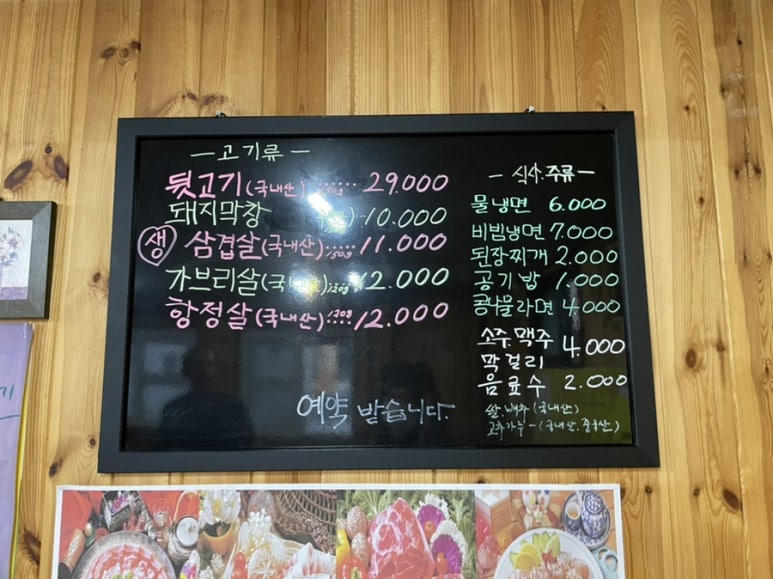 — 고기류 —
뒷고기 (국내산) 150g ..... 29.000
돼지막창 10.000
생 삼겹살 (국내산) 150g ..... 11.000
가브리살 (국내 120g .... 12.000
항정살 (국내산) 120g .... 12.000
예약 받습니다.
— 식사.주류 —
물냉면 6.000
비빔냉면 7.000
된장찌개 2.000
공기밥 1.000
콩나물라면 4.000
소주.맥주
막걸리 4.000
음료수 2.000
쌀.배추 (국내산)
고추가루 - (국내산.중국산)
기